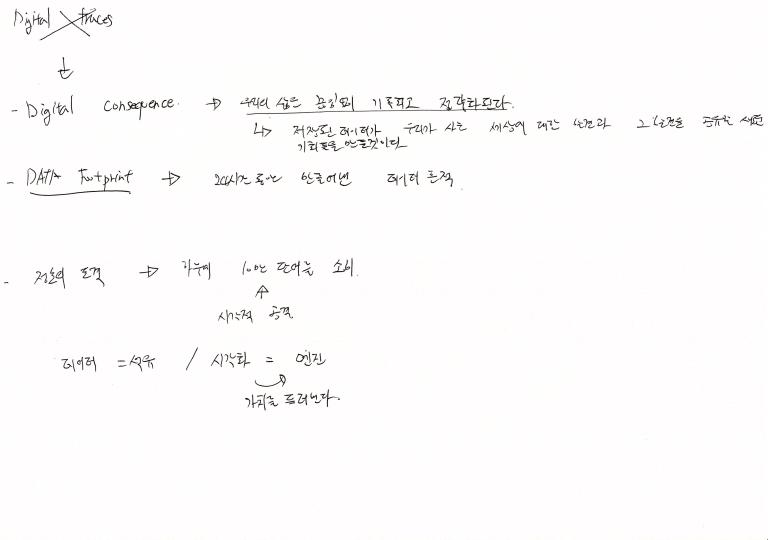 Digital traces
- Digital consequence. → 우리의 삶은 끊임없이 기록되고 정량화된다.
↳ 저장된 데이터가 우리가 사는 세상에 대한 발견과 그 발견을 공유할 새로운
기회를 만들것이다
- DATA Footprint → 24시간 동안 만들어낸 데이터 흔적
- 정보의 폭격 → 하루에 10만 단어를 소비.
시각적 공격
데이터 = 석유 / 시각화 = 엔진
가치를 드러낸다.